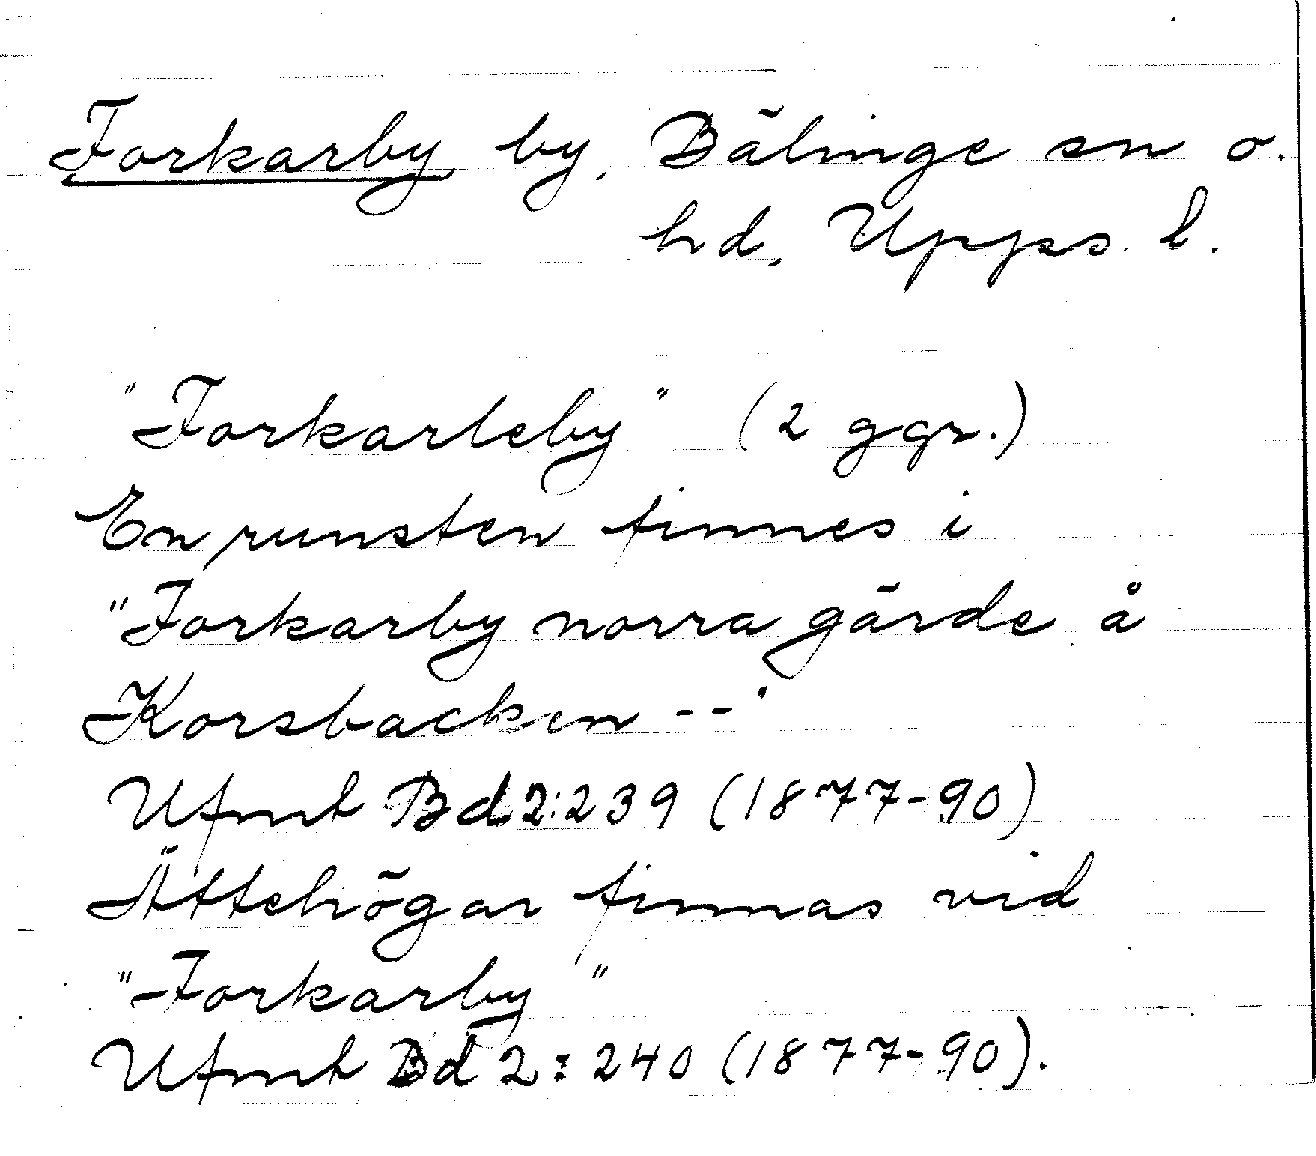 Forkarby by, Bälinge sn o.
hd, Upps. l.
"Forkarleby" (2 ggr.)
En runsten finnes i
"Forkarby norra gärde å
Korsbacken --"
Ufmt Bd 2:239 (1877-90)
Ättehögar finnas vid
"Forkarby"
Ufmt Bd 2:240 (1877-90).